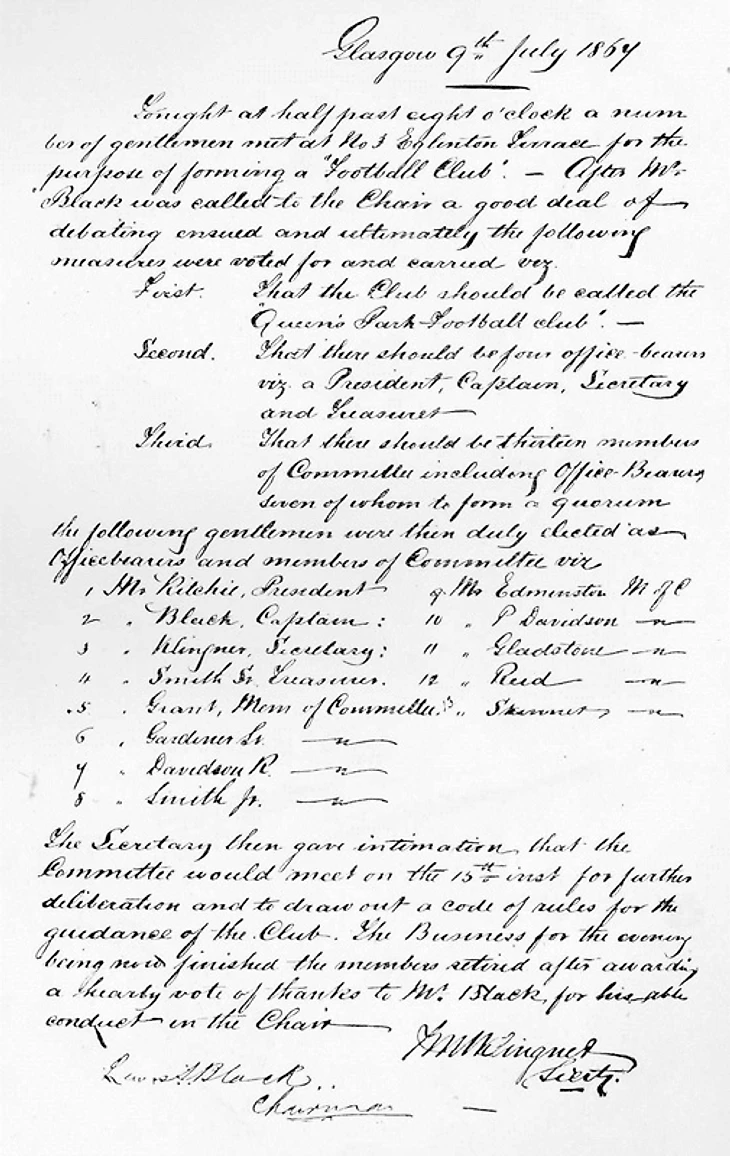 Glasgow 9th July 1867
Tonight at half past eight o'clock a num
ber of gentlemen met at No 3 Eglinton Terrace for the
purpose of forming a "Football Club". — After Mr
Black was called to the Chair a good deal of
debating ensued and ultimately the following
measures were voted for and carried viz.
First. That the Club should be called the
"Queen's Park Football club". —
Second. That there should be four office-bearers
viz. a President, Captain, Secretary
and Treasurer
Third. That there should be thirteen members
of Committee including Office-Bearers
seven of whom to form a quorum
the following gentlemen were then duly elected as
Officebearers and members of Committee viz
1 Mr Ritchie, President 9 Mr Edminston M of C
2 " Black, Captain: 10 " P Davidson — " —
3 " Klingner, Secretary: 11 " Gladstone — " —
4 " Smith Sr. Treasurer. 12 " Reid — " —
5 " Grant, Mem of Committee. 13 " Skinner, — " —
6 " Gardiner Sr. — " —
7 " Davidson R. — " —
8 " Smith Jr. — " —
The Secretary then gave intimation, that the
Committee would meet on the 15th inst for further
deliberation and to draw out a code of rules for the
guidance of the Club. The Business for the evening
being now finished the members retired after awarding
a hearty vote of thanks to Mr. Black, for his able
conduct in the Chair
Klingner
Secty.
Lewis Black
Chairman —